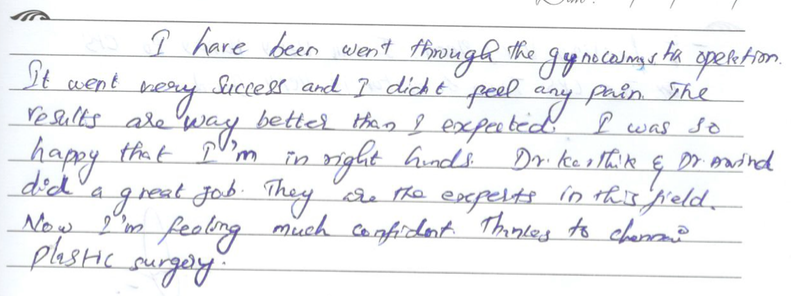 I have been went through the gynocolmastia operation.
It went very success and I didn't feel any pain. The
results are way better than I expected. I was so
happy that I'm in right hands. Dr. Karthik & Dr. Arvind
did a great job. They are the experts in this field.
Now I'm feeling much confident. Thanks to chennai
plastic surgery.